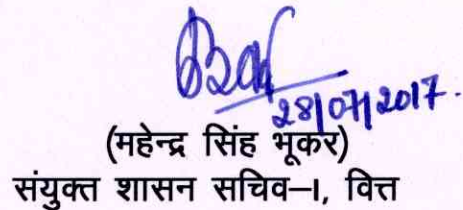 28/07/2017.
(महेन्द्र सिंह भूकर)
संयुक्त शासन सचिव–I, वित्त